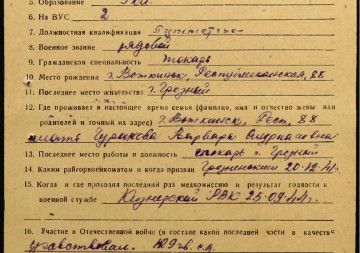 5. Образование
6. На ВУС 2
7. Должностная квалификация
8. Военное звание рядовой
9. Гражданская специальность токарь
10. Место рождения г. Воткинск, Республиканская, 88
11. Последнее место жительств г. Грозный
12. Где проживает в настоящее время семья (фамилия, имя и отчество жены или
родителей и точный их адрес) г. Воткинск, Респ., 88
мать Варвара
13. Последнее место работы и должность токарь г. Грозный
14. Каким райгорвоенкоматом и когда призван Грозненский 20.12.41г.
15. Когда и где проходил последний раз медкомиссию и результат годности к
военной службе РВК 25.09.44г.
16. Участие в Отечественной войне (в составе какой последней части в качеств
участвовал. 109 гв. с.п.